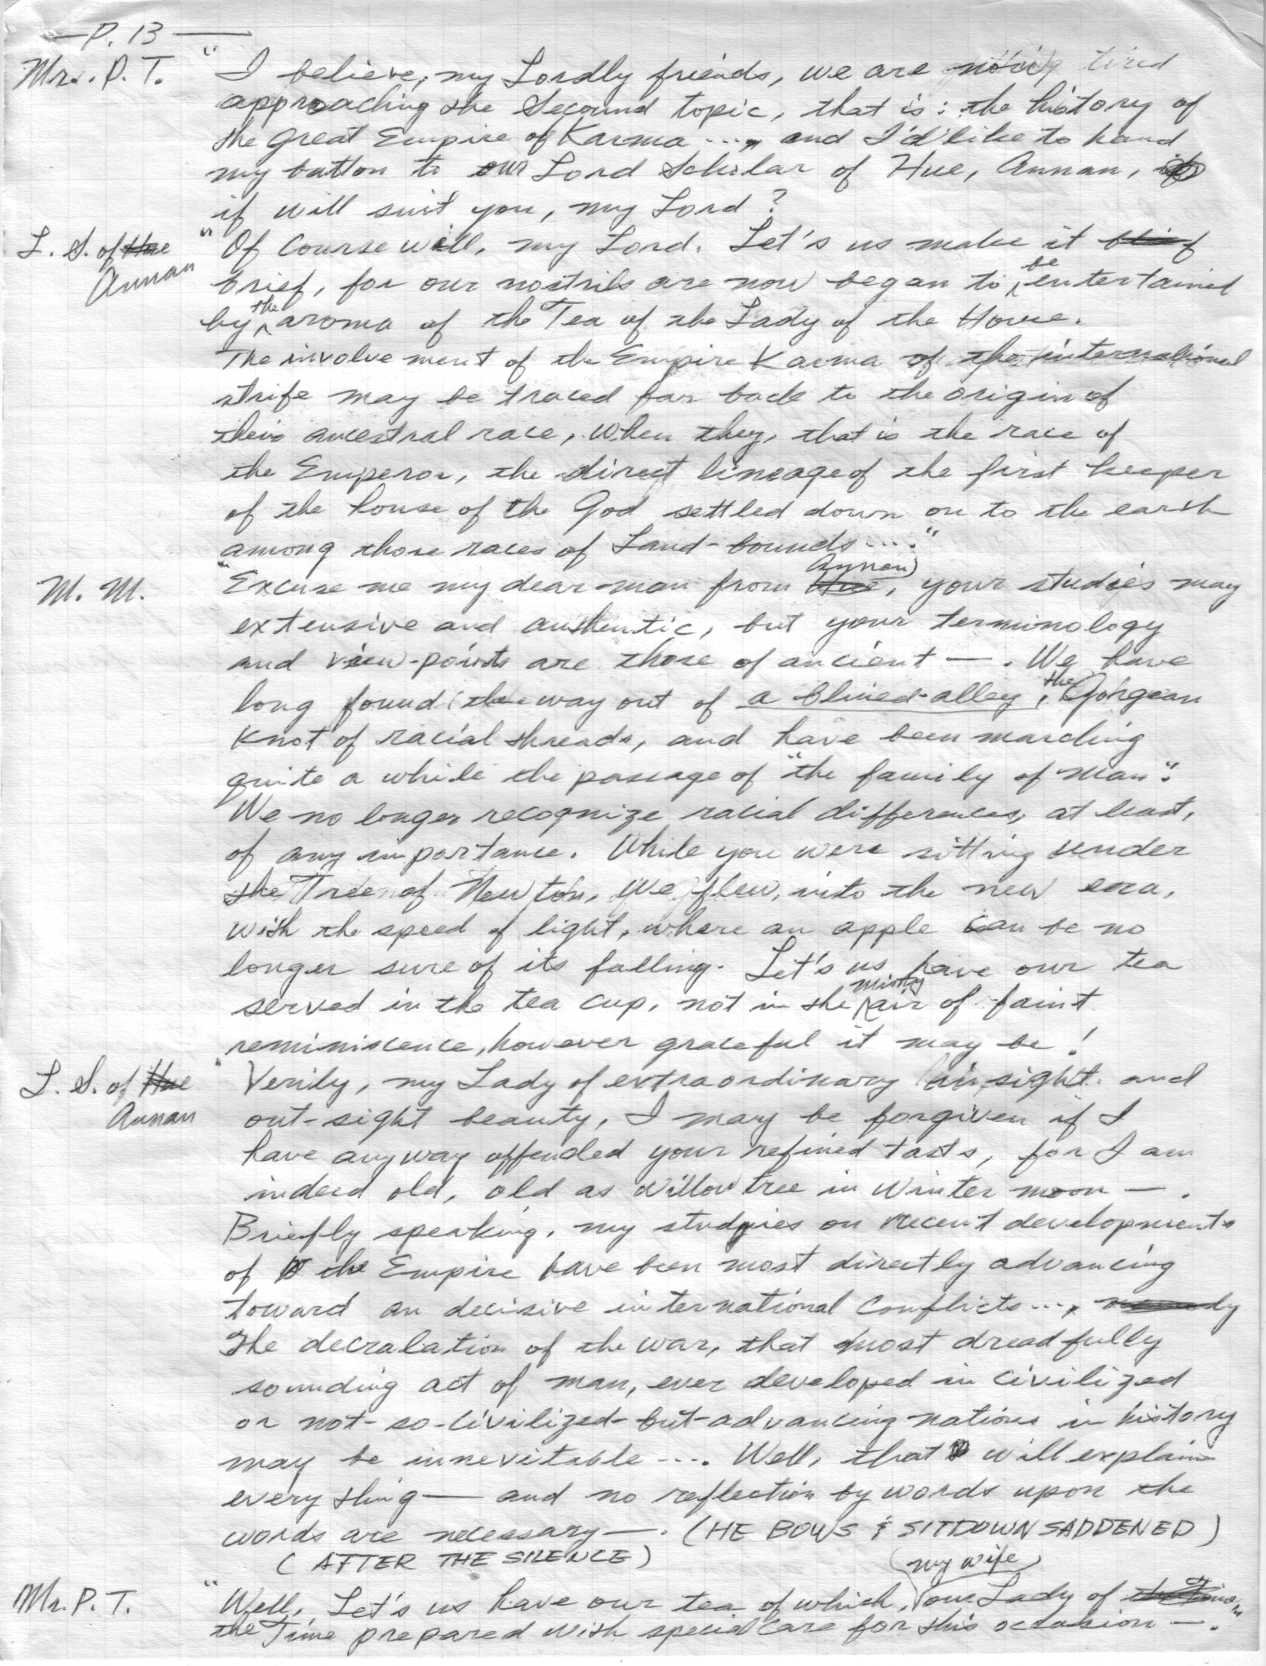 — P. 13 —
Mr. P. T. "I believe, my Lordly friends, we are
approaching the Second topic, that is: the history of
the great Empire of Karma ...., and I'd like to hand
my button to our Lord Scholar of Hue, Annan,
if will suit you, my Lord?
L. S. of Hue Annan "Of course will, my Lord. Let's us make it brief
brief, for our nostrils are now began to be entertained
by the aroma of the Tea of the Lady of the House.
The involvement of the Empire Karma of the international
strife may be traced far back to the origin of
their ancestral race, when they, that is the race of
the Emperor, the direct lineage of the first keeper
of the house of the God settled down on to the earth
among those races of Land-bounds ...."
M. M. "Excuse me my dear man from Hue Annan, your studies may
extensive and authentic, but your terminology
and view-points are those of ancient —. We have
long found the way out of a blined-alley, the Gorgean
Knot of racial threads, and have been marching
quite a while the passage of "the family of man".
We no longer recognize racial differences, at least,
of any importance. While you were sitting under
the Tree of Newton, we flew into the new era,
with the speed of light, where an apple can be no
longer sure of its falling. Let's us have our tea
served in the tea cup, not in the misty air of faint
reminiscence, however graceful it may be!
L. S. of Hue Annan "Verily, my Lady of extraordinary in-sight and
out-sight beauty, I may be forgiven if I
have anyway offended your refined tasts, for I am
indeed old, old as willow tree in winter moon —.
Briefly speaking, my studies on recent developments
of the Empire have been most directly advancing
toward an decisive international conflicts ...., namely
The decralation of the war, that most dreadfully
sounding act of man, ever developed in civilized
or not-so-civilized-but-advancing nations in history
may be innevitable .... Well, that will explain
every thing — and no reflection by words upon the
words are necessary —. (HE BOWS & SITDOWN SADDENED)
(AFTER THE SILENCE)
Mr. P. T. "Well, Let's us have our tea of which, (my wife) our Lady of
the Time prepared with special care for this occasion —.